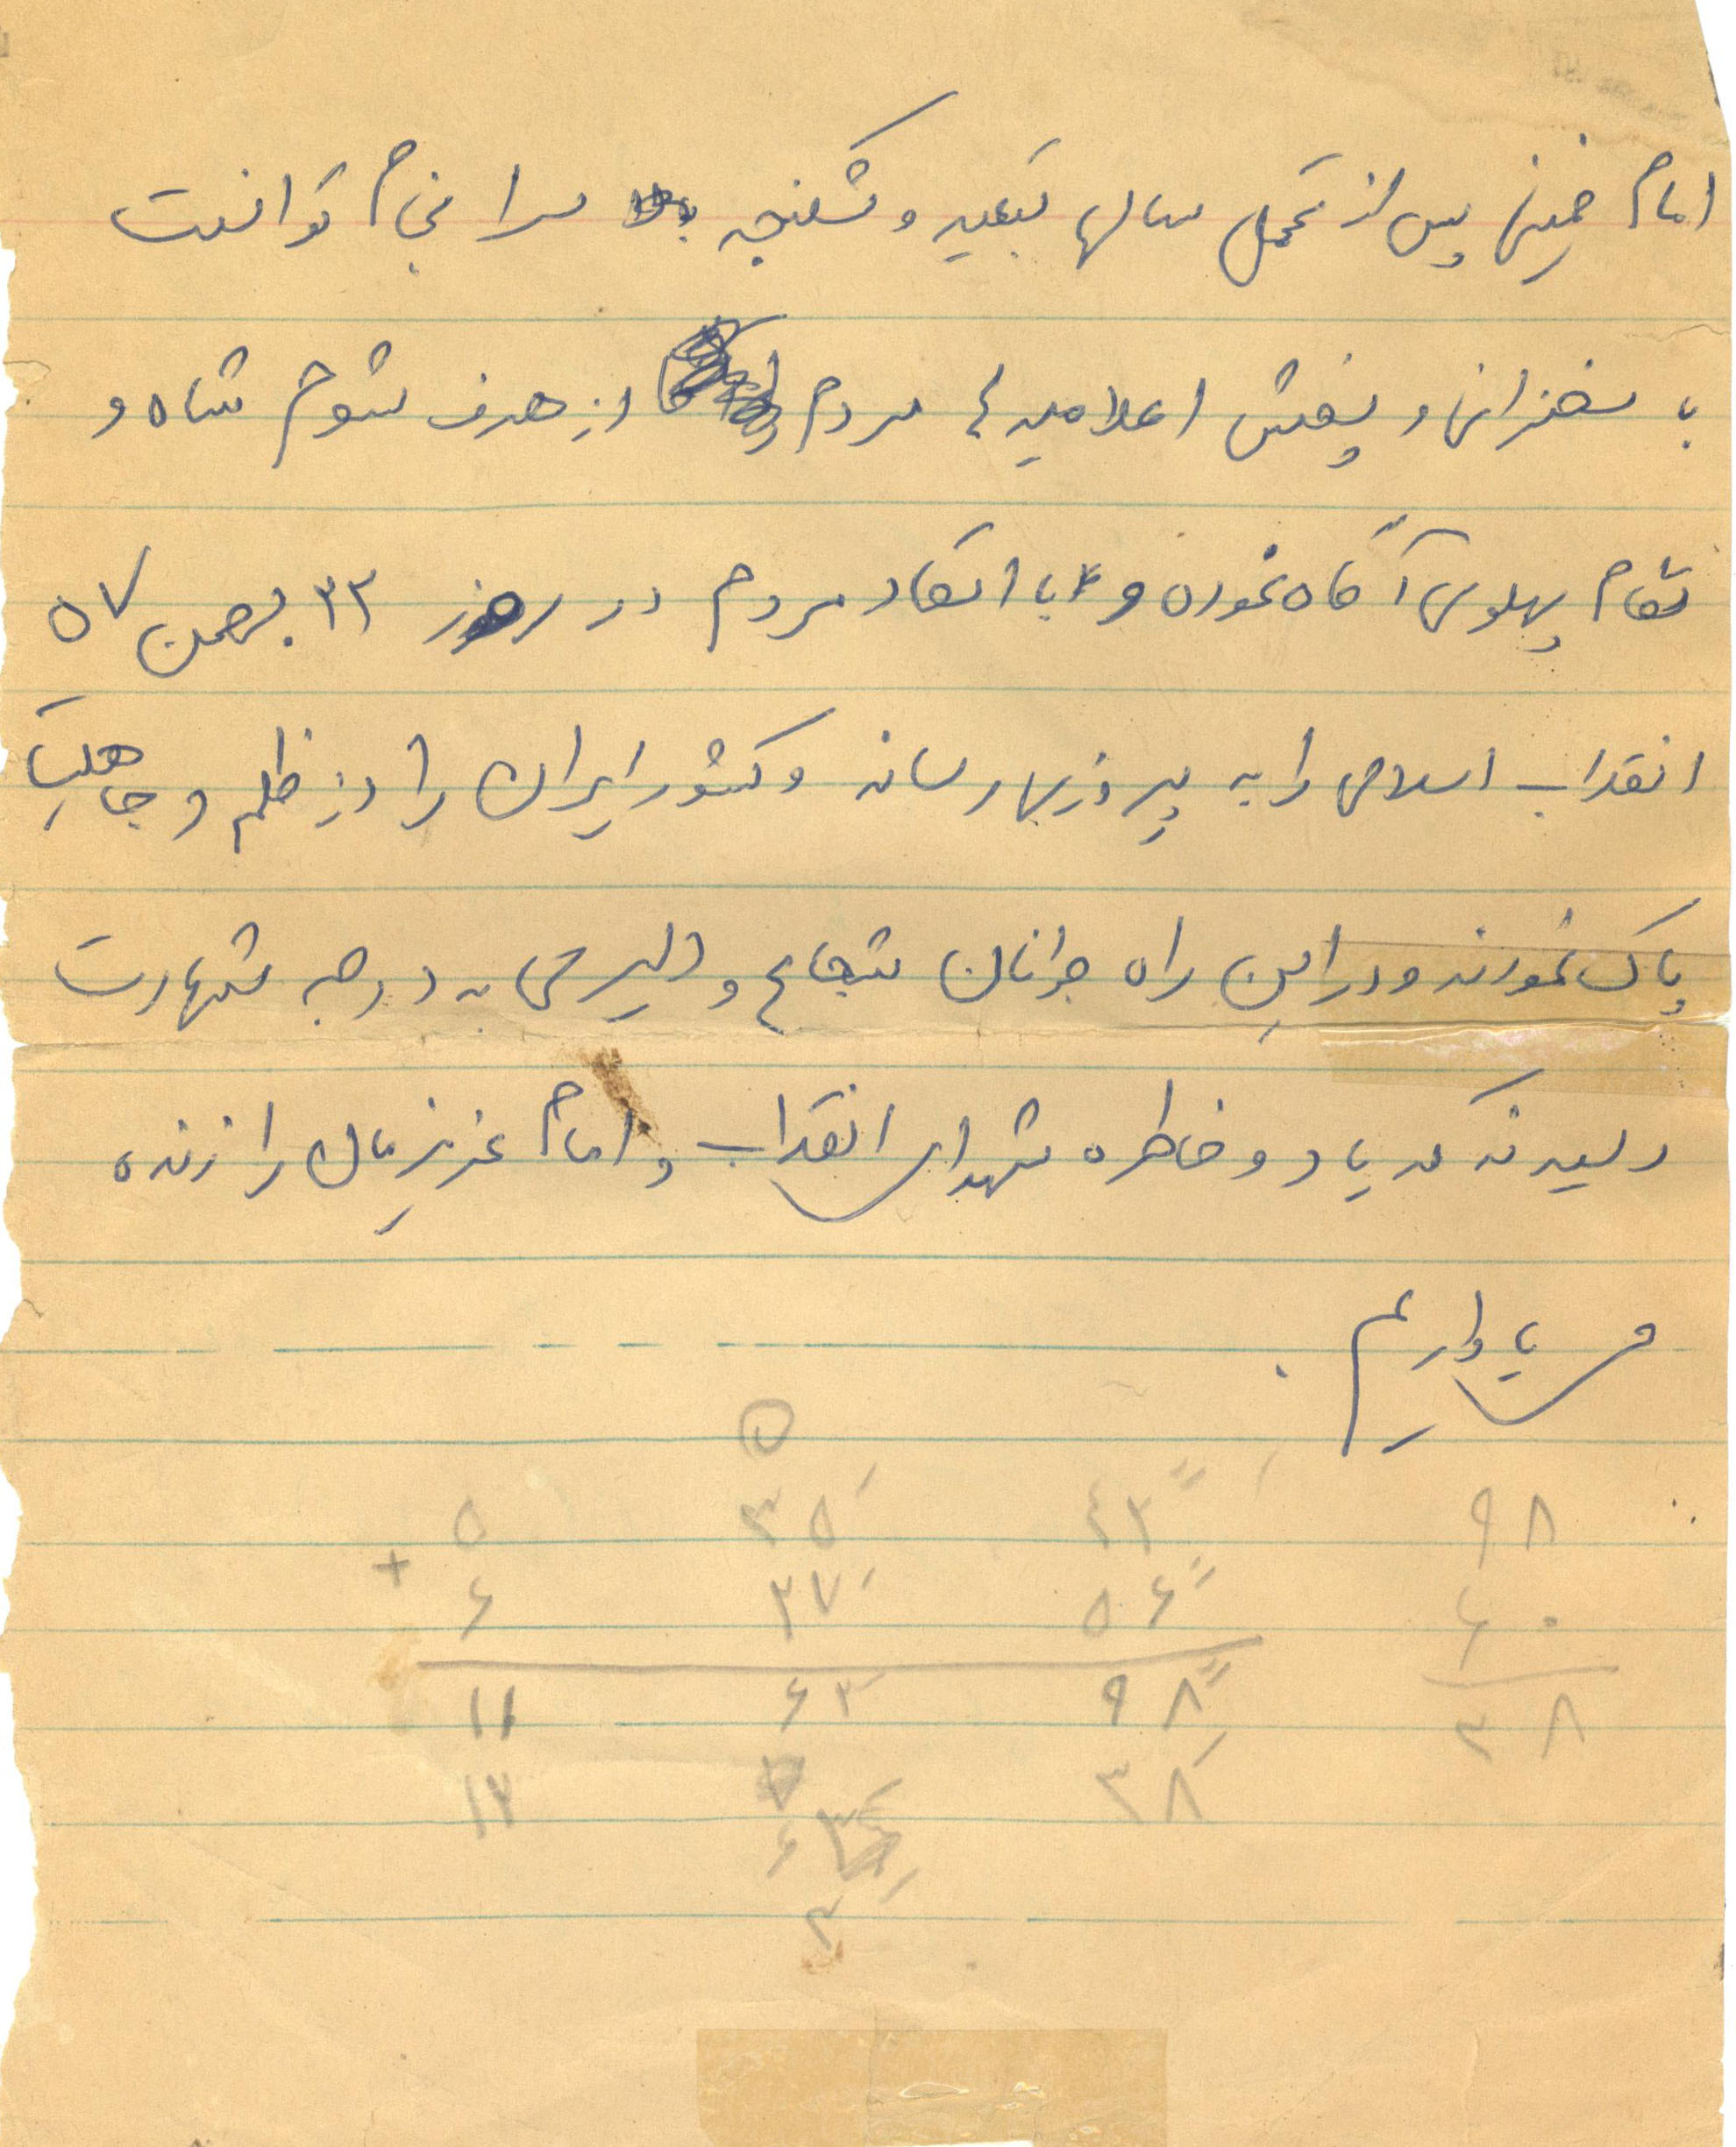 امام خمینی پس از تحمل سالها تبعید و شکنجه سرانجام توانست
با سخنرانی و پخش اعلامیه مردم از هدف شوم شاه و
نظام پهلوی آگاه نموده و با اتحاد مردم در روز ۲۲ بهمن ۵۷
انقلاب اسلامی را به پیروزی رساند و کشور ایران را از ظلم و جاهلیت
پاک نمودند و در این راه جوانان شجاع و دلیری به درجه شهادت
رسیدند که یاد و خاطره شهدای انقلاب و امام عزیزمان را زنده
می داریم .
۵
۹۸ ۴۲ ۳۵ ۵
۶۰ ۵۶ ۲۷ ۶ +
۳۸ ۹۸ ۶۳ ۱۱
۳۸ ۱۲
۶
۳